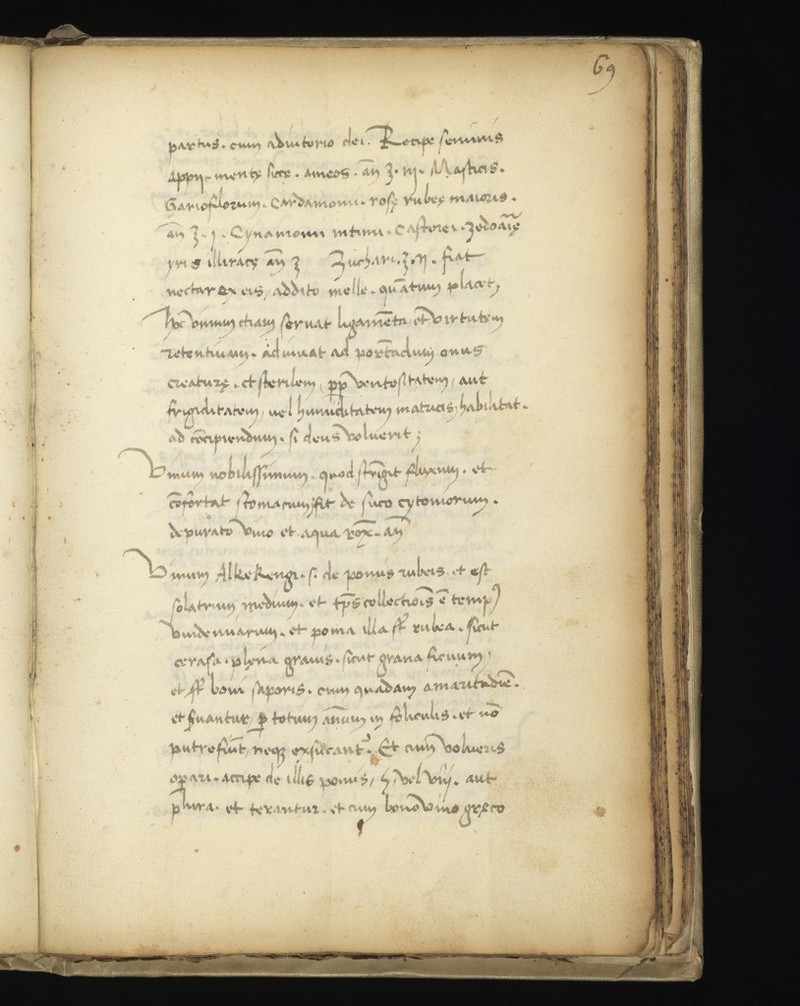 69
partus. cum adiutorio dei. Recipe seminis
appij. mentę siccę. ameos. añ ʒ. iij. Masticis.
Gariofilorum. Cardamomi. rosę rubeę maioris.
añ ʒ. j. Cynamomi intimi. Castorei. zedoarię
yris illiricę añ ʒ Zuchari. ʒ. ij. fiat
nectar ex eis, addito melle. quãtum placet;
Hoc vinum etiam seruat ligamẽta et virtutem
retentiuam. adiuuat ad portãdum onus
creaturę. et sterilem, pp̃ ventositatem, aut
frigiditatem, uel humiditatem matricis, habilitat.
ad cõcipiendum. si deus voluerit;
Vinum nobilissimum. quod strĩgit fluxum. et
cõfortat stomacum, fit de suco cytoniorum.
depurato vino et aqua rox̃. añ
Vinum Alkekengi. s. de pomis rubeis. et est
solatrum medium. et tp̃s collectiõis ẽ temp̲e̲
vindemiarum. et poma illa sṫ rubea. sicut
cerasa. plena granis. sicut grana ficuum,
et sṫ boni saporis. cum quadam amaritudiẽ.
et s̃uantur p̲ totum annum in foliculis. et nõ
putrefiũt, neq; exsiccantᷣ. Et cum volueris
op̲ari. accipe de illis pomis, 7, vel viij. aut
plura. et terantur. et cum bono vino gręco